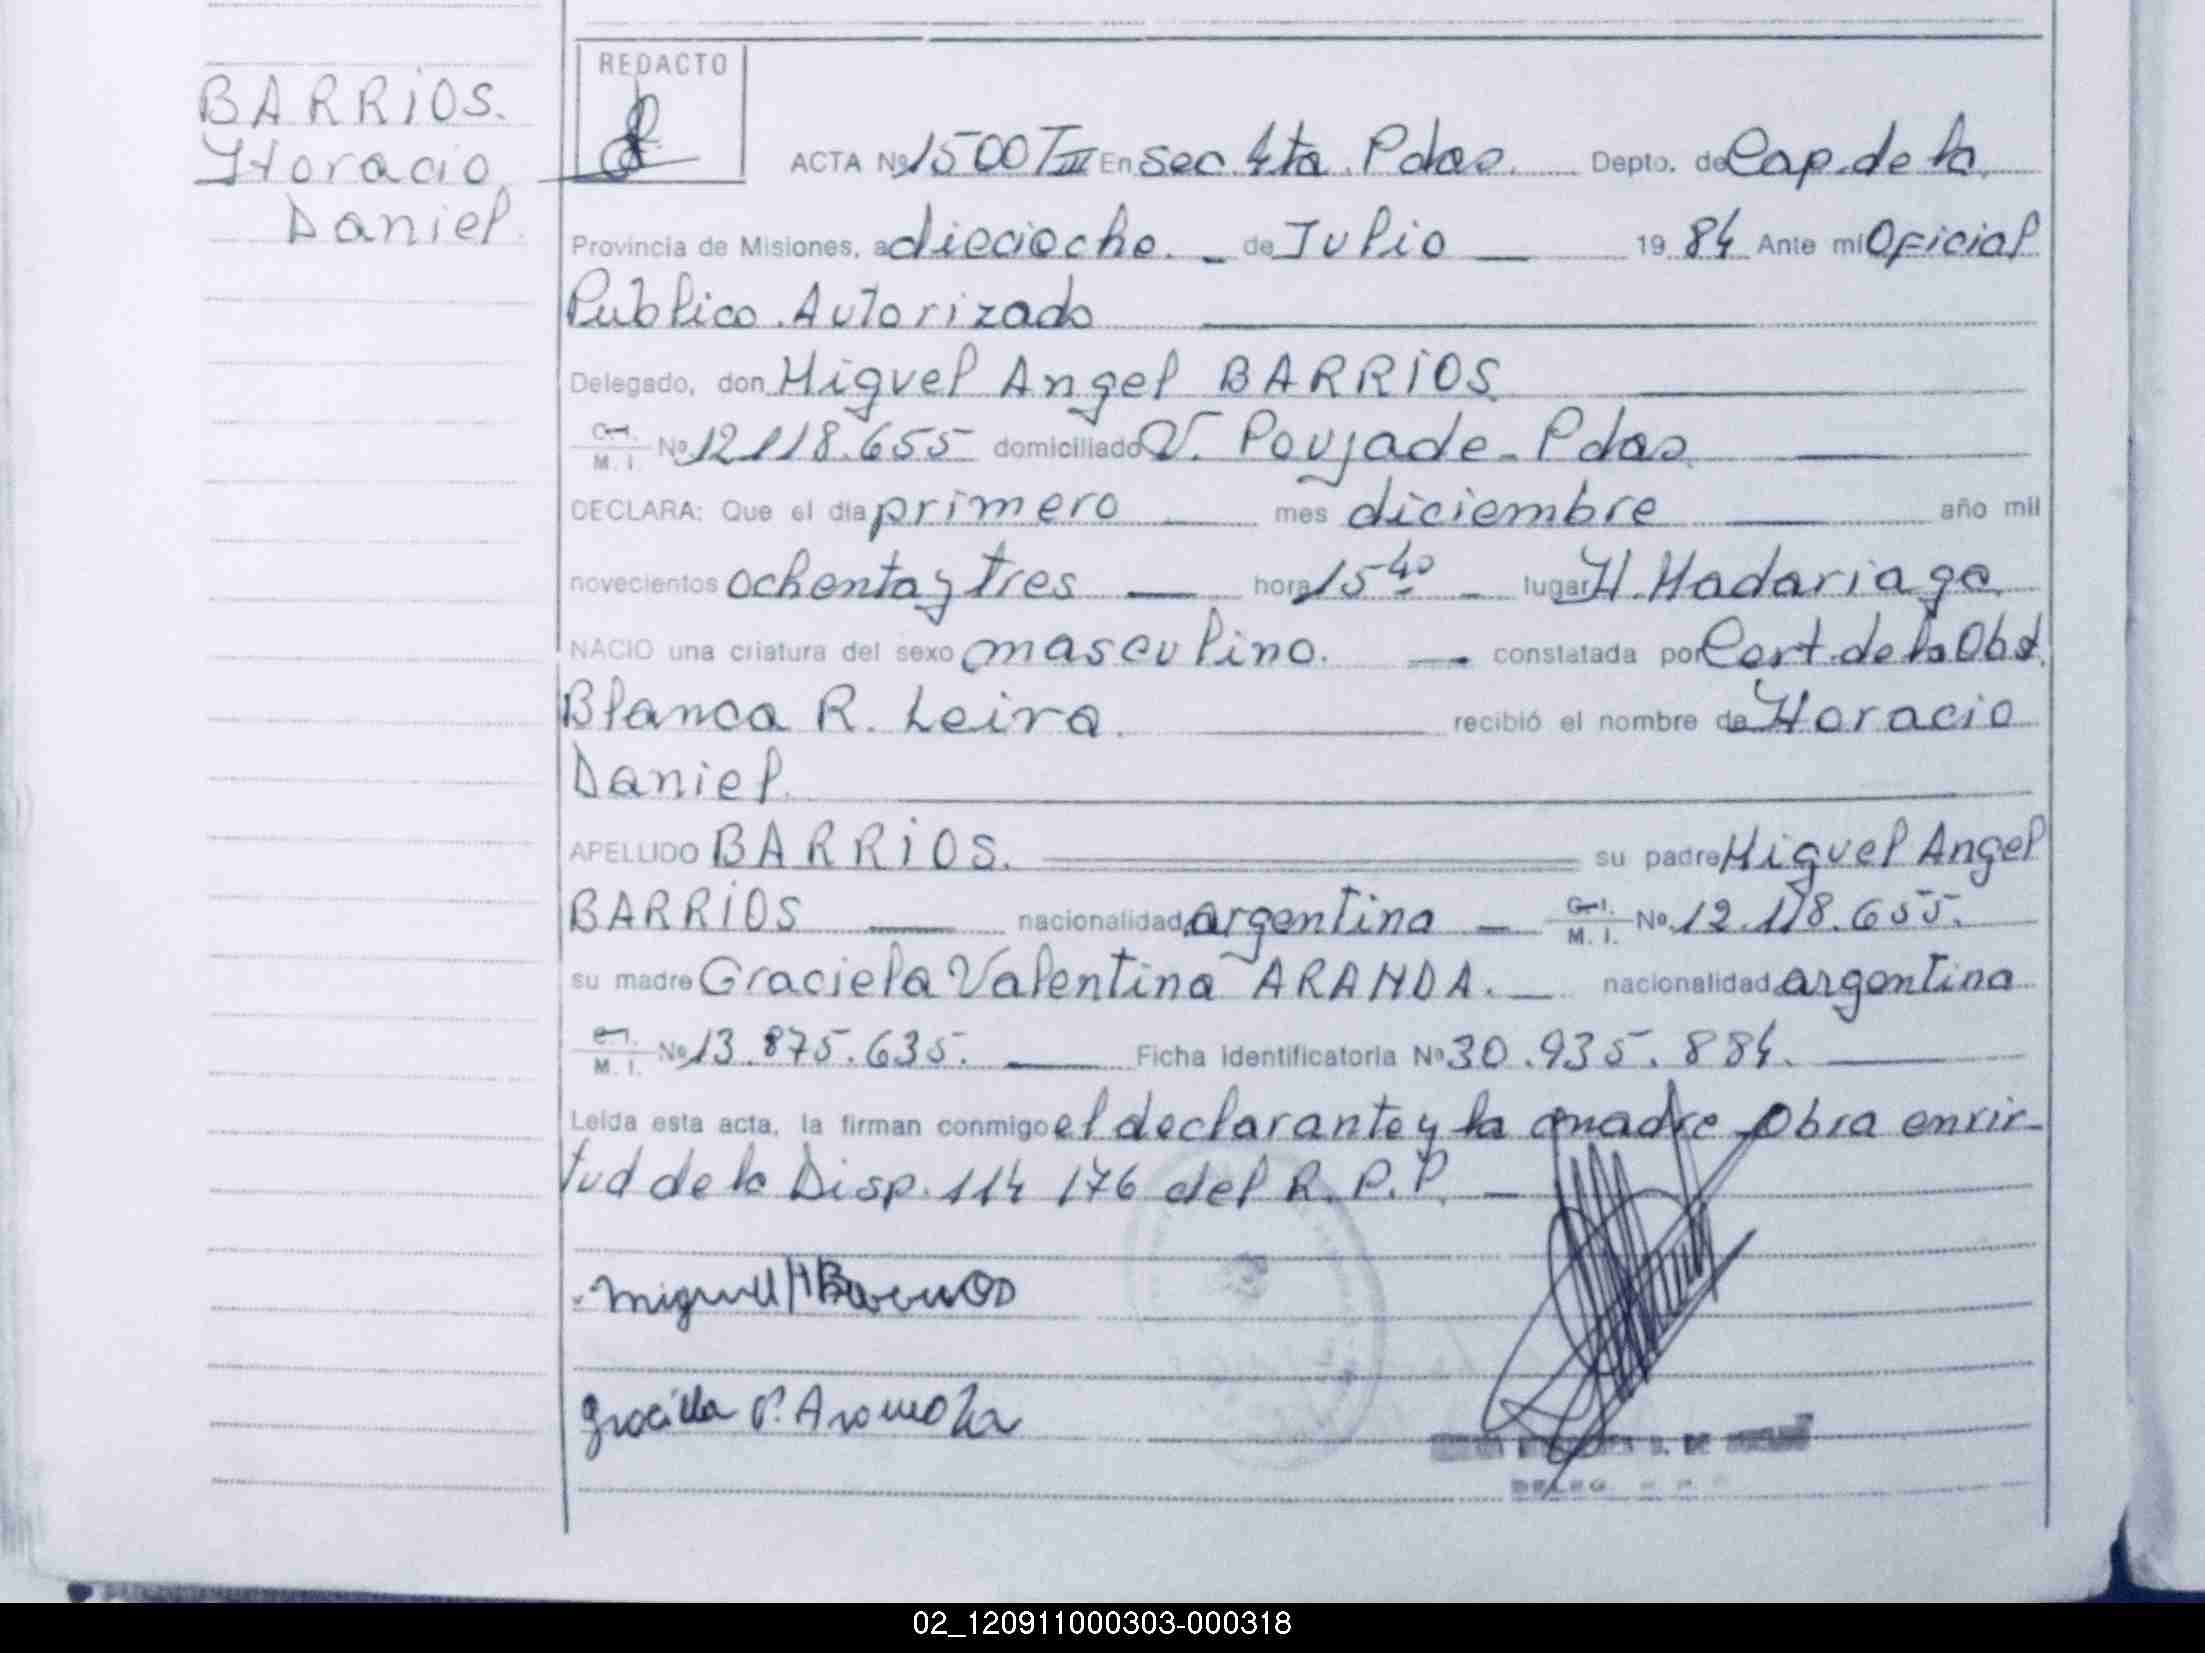 BARRiOS.
Horacio
Daniel.
REDACTO
ACTA Nº 1500 TIII En sec. 4ta. Pdas. Depto. de Cap. de la
Provincia de Misiones, a dieciocho. _ de Julio _ 19 84 Ante mí Oficial
Publico. Autorizado
Delegado, don Miguel Angel BARRiOS
C. I. M. I. Nº 12118.655 domiciliado V. Poujade - Pdas.
DECLARA: Que el día primero mes diciembre año mil
novecientos ochenta y tres hora 15 40 lugar H. Madariaga
NACIO una criatura del sexo masculino. constatada por Cert. de la Obst.
Blanca R. Leiva. recibió el nombre de Horacio
Daniel.
APELLIDO BARRiOS. su padre Miguel Angel
BARRiOS nacionalidad argentina C. I. M. I. Nº 12.118.655.
su madre Graciela Valentina ARANDA. nacionalidad argentina
C. I. M. I. Nº 13.875.635. Ficha identificatoria Nº 30.935.884.
Leída esta acta, la firman conmigo el declarante y la madre Obra en vir-
tud de la Disp. 114/76 del R. P. P.
Miguel A Barrios
DELEG. R. P.
02_120911000303-000318